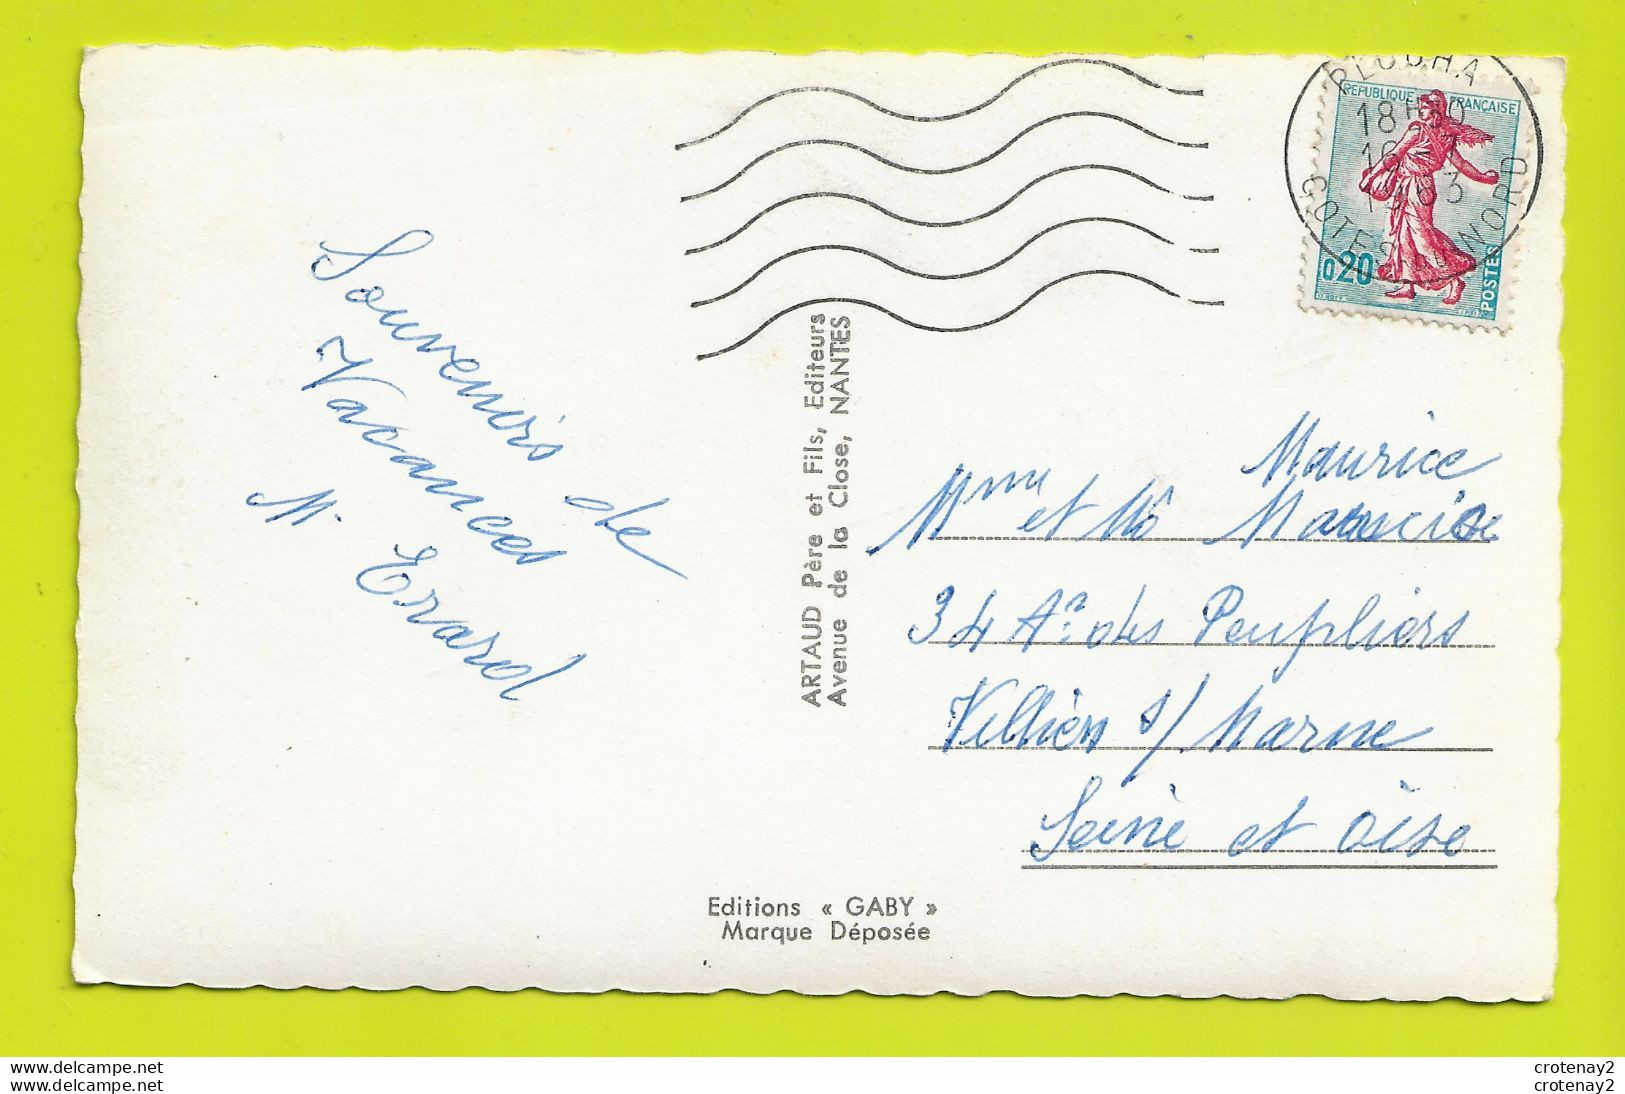 PLOUHA
18H30
1963
COTES-DU-NORD
REPUBLIQUE FRANÇAISE
0,20
POSTES
Souvenirs de
Vacances
M. Erard
ARTAUD Père et Fils, Editeurs
Avenue de la Close, NANTES
Maurice
Mme et Mr
34 Ave des Peupliers
Villiers s/ Marne
Seine et Oise
Editions « GABY »
Marque Déposée
www.delcampe.net
www.delcampe.net
crotenay2
crotenay2